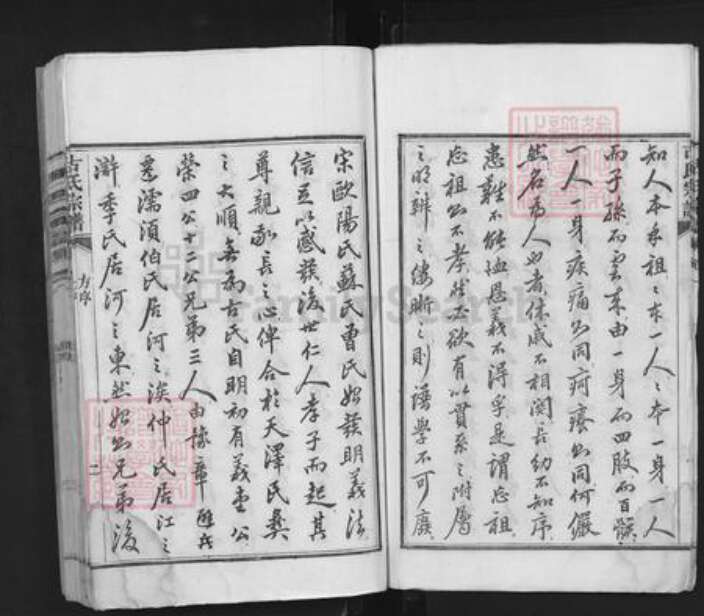 知人本乎祖祖本一人一人之本一身一人
而子孫而雲来由一身而四肢而百體
一人一身疾痛必同疴癢必同何儼
然名為人也者休戚不相関長幼不知序
患難不能恤恩義不得孚是謂忘祖
忘祖必不孝然必欲有以貫系之附屬
之明辨之縷晰之則譜學不可廢
宋歐陽氏蘇氏曹氏始發明義法
信足以感發後世仁人孝子而起其
尊親敬長之心俾合於天澤民彝
之大順無為古氏自明初有義金公
榮四公十二公兄弟三人由豫章避兵
遷濡須伯氏居河之涘仲氏居江之
滸季氏居河之東然始必兄弟後
古氏宗譜
方序
二
FamilySearch